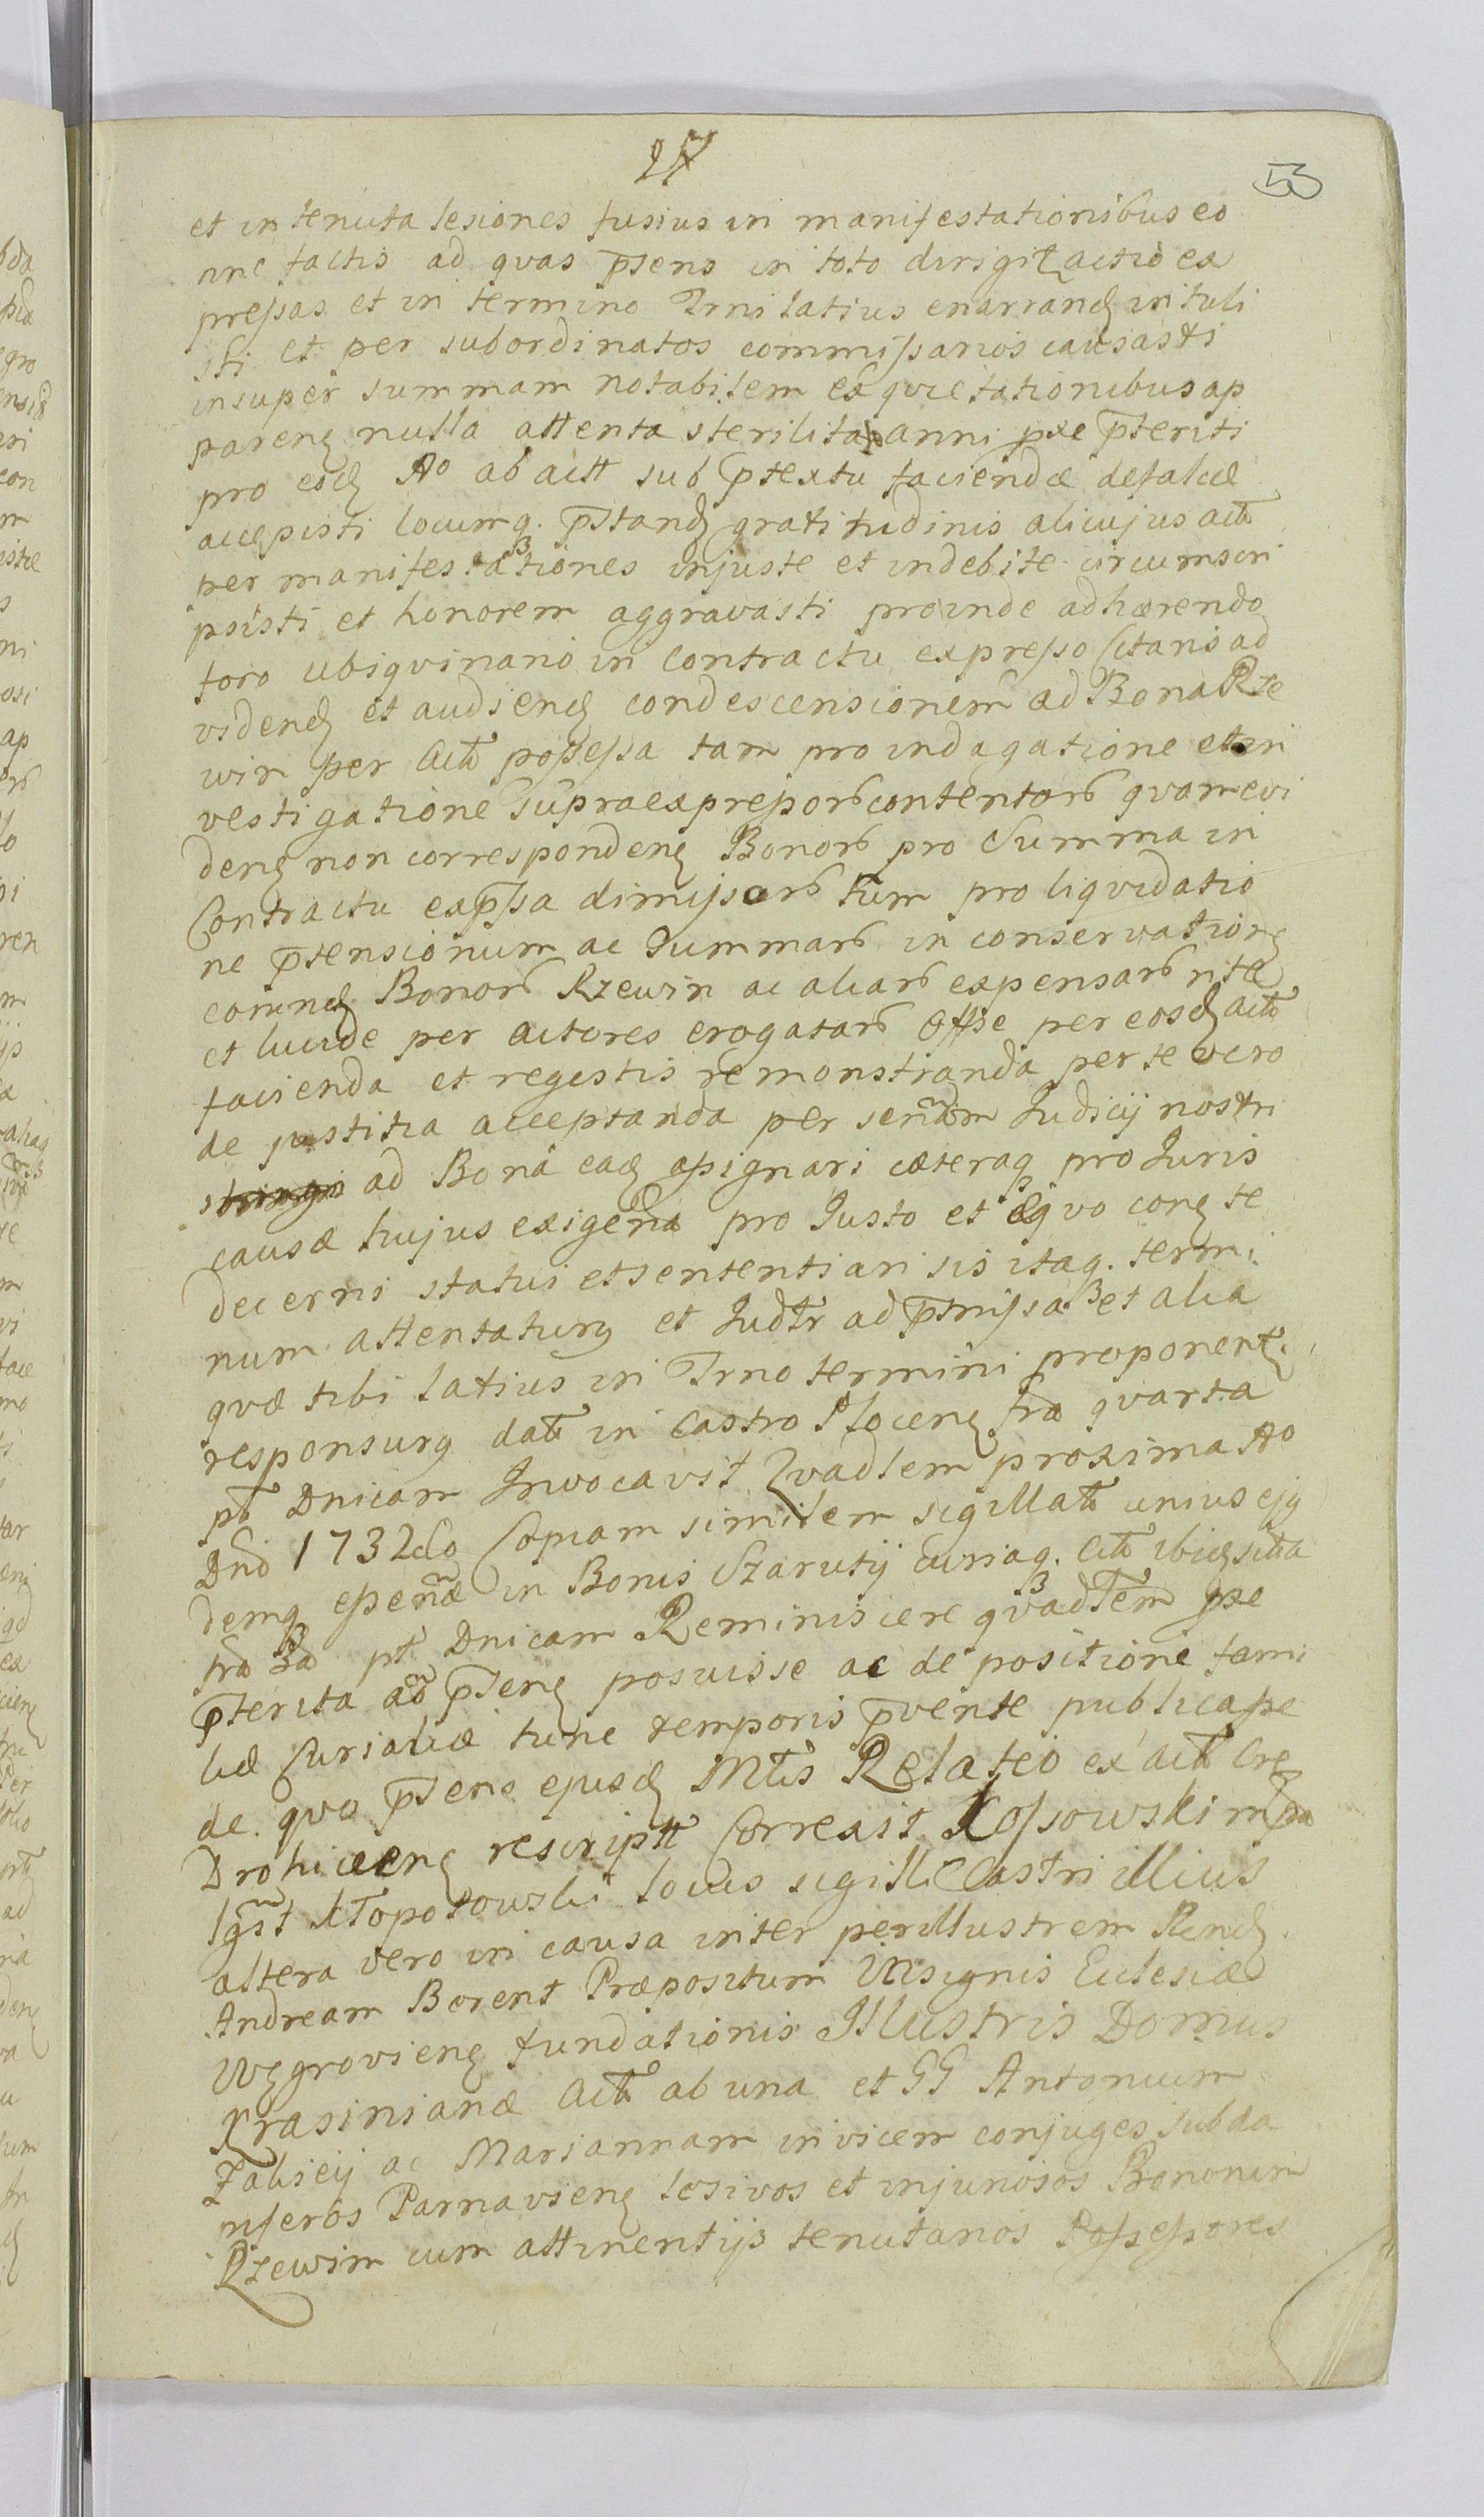 27
53
et in tenuta lesiones fusius in manifestationibus eo
nne factis ad qvas p̄sens in toto dirigit actio ex
pressas et in termino Trni latius enarrand intuli
sti et per subordinatos commissarios causasti
insuper summam notabilem ex qvietationibus ap
paren nulla attenta sterilita anni pxe p̄teriti
pro eod Ao ab actt sub p̄textu faciendæ defalcæ
accepisti locumq. p̄standæ gratitudinis alicujus actt
per manifestationes injuste et indebite circumscri
psisti et honorem aggravasti proinde adhærendo
foro ubiqvinario in Contractu expresso Citaris ad
vidend et audiend condescensionem ad Bona Rze
win per Actt possessa tam pro indagatione et in
vestigatione supraexpressorb contentorb qvam evi
den non corresponden Bonorb pro Summa in
Contractu exp̄ssa dimissorb tum pro liqvidatio
ne p̄tensionum ac Summarb in conservatione
eorund Bonorb Rzewin ac aliarb expensarb rite
et lucide per actores erogatarb Offie per eosd actt
facienda et regestis remonstranda per te vero
de justitia acceptanda per senm Judicij nostri
ad Bona ead assignari cæteraq pro Juris
causæ hujus exigena pro Justo et Æqvo con te
decerni statui et sententiari sis itaq. termi
num attentaturg et Judr ad p̄missa et alia
qvæ tibi latius in Trno termini proponent.
responsurg datt in Castro Plocen fra qvarta
pt Dnicam Invocavit Qvadlem proxima Ao
Dni 1732do Copiam similem sigillatt unius ejq
demq essenæ in Bonis Szarutij Curiaq. Actt ibid sitta
fra 3a pt Dnicam Reminiscere qvadlem pxe
p̄terita ad p̄sen posuisse ac de positione fami
liæ Curialiæ tunc temporis p̄vente publicasse
de qvo p̄sens ejusd Mtis Relatio ex actt Cre
Drohiceen rescriptt Correxit Kossowski mpa
lgst XTopolowski locus sigilli Castri illius
altera vero in causa inter perillustrem Rend
Andream Berent Præpositum Insignis Eclesiæ
Węgrovien fundationis Illustris Domus
Krasinianæ Actt ab una et GG Antonium
Zalisey ac Mariannam invicem conjuges Subda
pferos Parnavien læsivos et injuriosos Bonorum
Rzewin cum attinentijs tenutarios Possessores